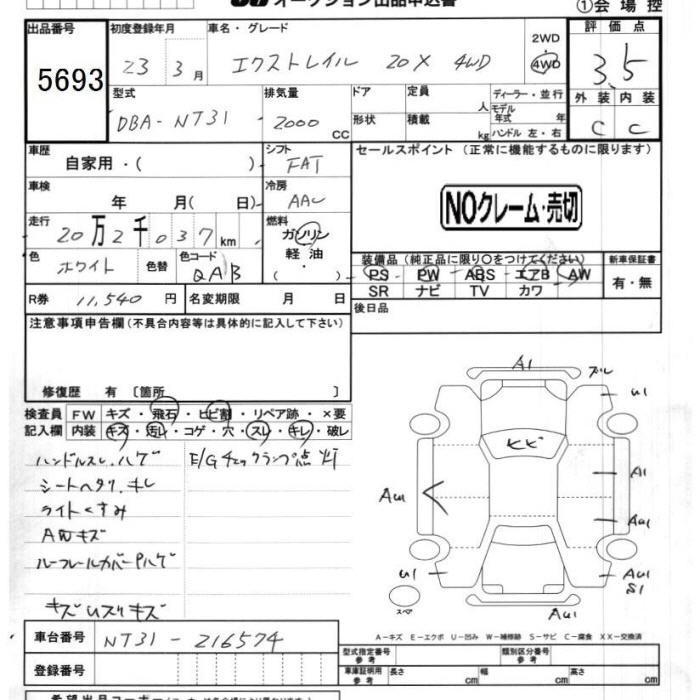 オークション出品申込書
①会場控
出品番号 初度登録年月 車名・グレード 2WD 評価点
5693 23 3月 エクストレイル 20X 4WD 4WD 3.5
型式 排気量 ドア 定員 人 ディーラー・並行 外装 内装
DBA-NT31 2000 CC 形状 積載 kg モデル年式 年 ハンドル 左・右 C C
車歴 シフト セールスポイント (正常に機能するものに限ります)
自家用・( ) FAT
車検 冷房
年 月( 日) AAC NOクレーム・売切
走行 燃料
20万2千037km ガソリン
軽油
色 色替 色コード 装備品 (純正品に限り○をつけてください) 新車保証書
ホワイト QAB ( ・ ) PS PW ABS エアB AW 有・無
R券 11,540円 名変期限 月 日 SR ナビ TV カワ
注意事項申告欄 (不具合内容等は具体的に記入して下さい) 後日品
修復歴 有 〔箇所 〕
検査員 FW キズ・飛石・ヒビ割・リペア跡・×要
記入欄 内装 キズ・汚レ・コゲ・穴・スレ・キレ・破レ
ハンドルスレ.ハゲ E/Gチェックランプ点灯
シートヘタリ.キレ
ライトくすみ
AWキズ
ルーフレールカバーPハゲ
A1
ズレ
U1
ヒビ
A1
AU1
AU1
U1
AU1
S1
AU1
スペア
A-キズ E-エクボ U-凹み W-補修跡 S-サビ C-腐食 XX-交換済
車台番号 NT31-216574
登録番号
型式指定番号 参考 類別区分番号 参考
車庫証明用 参考 長さ cm 幅 cm 高さ cm